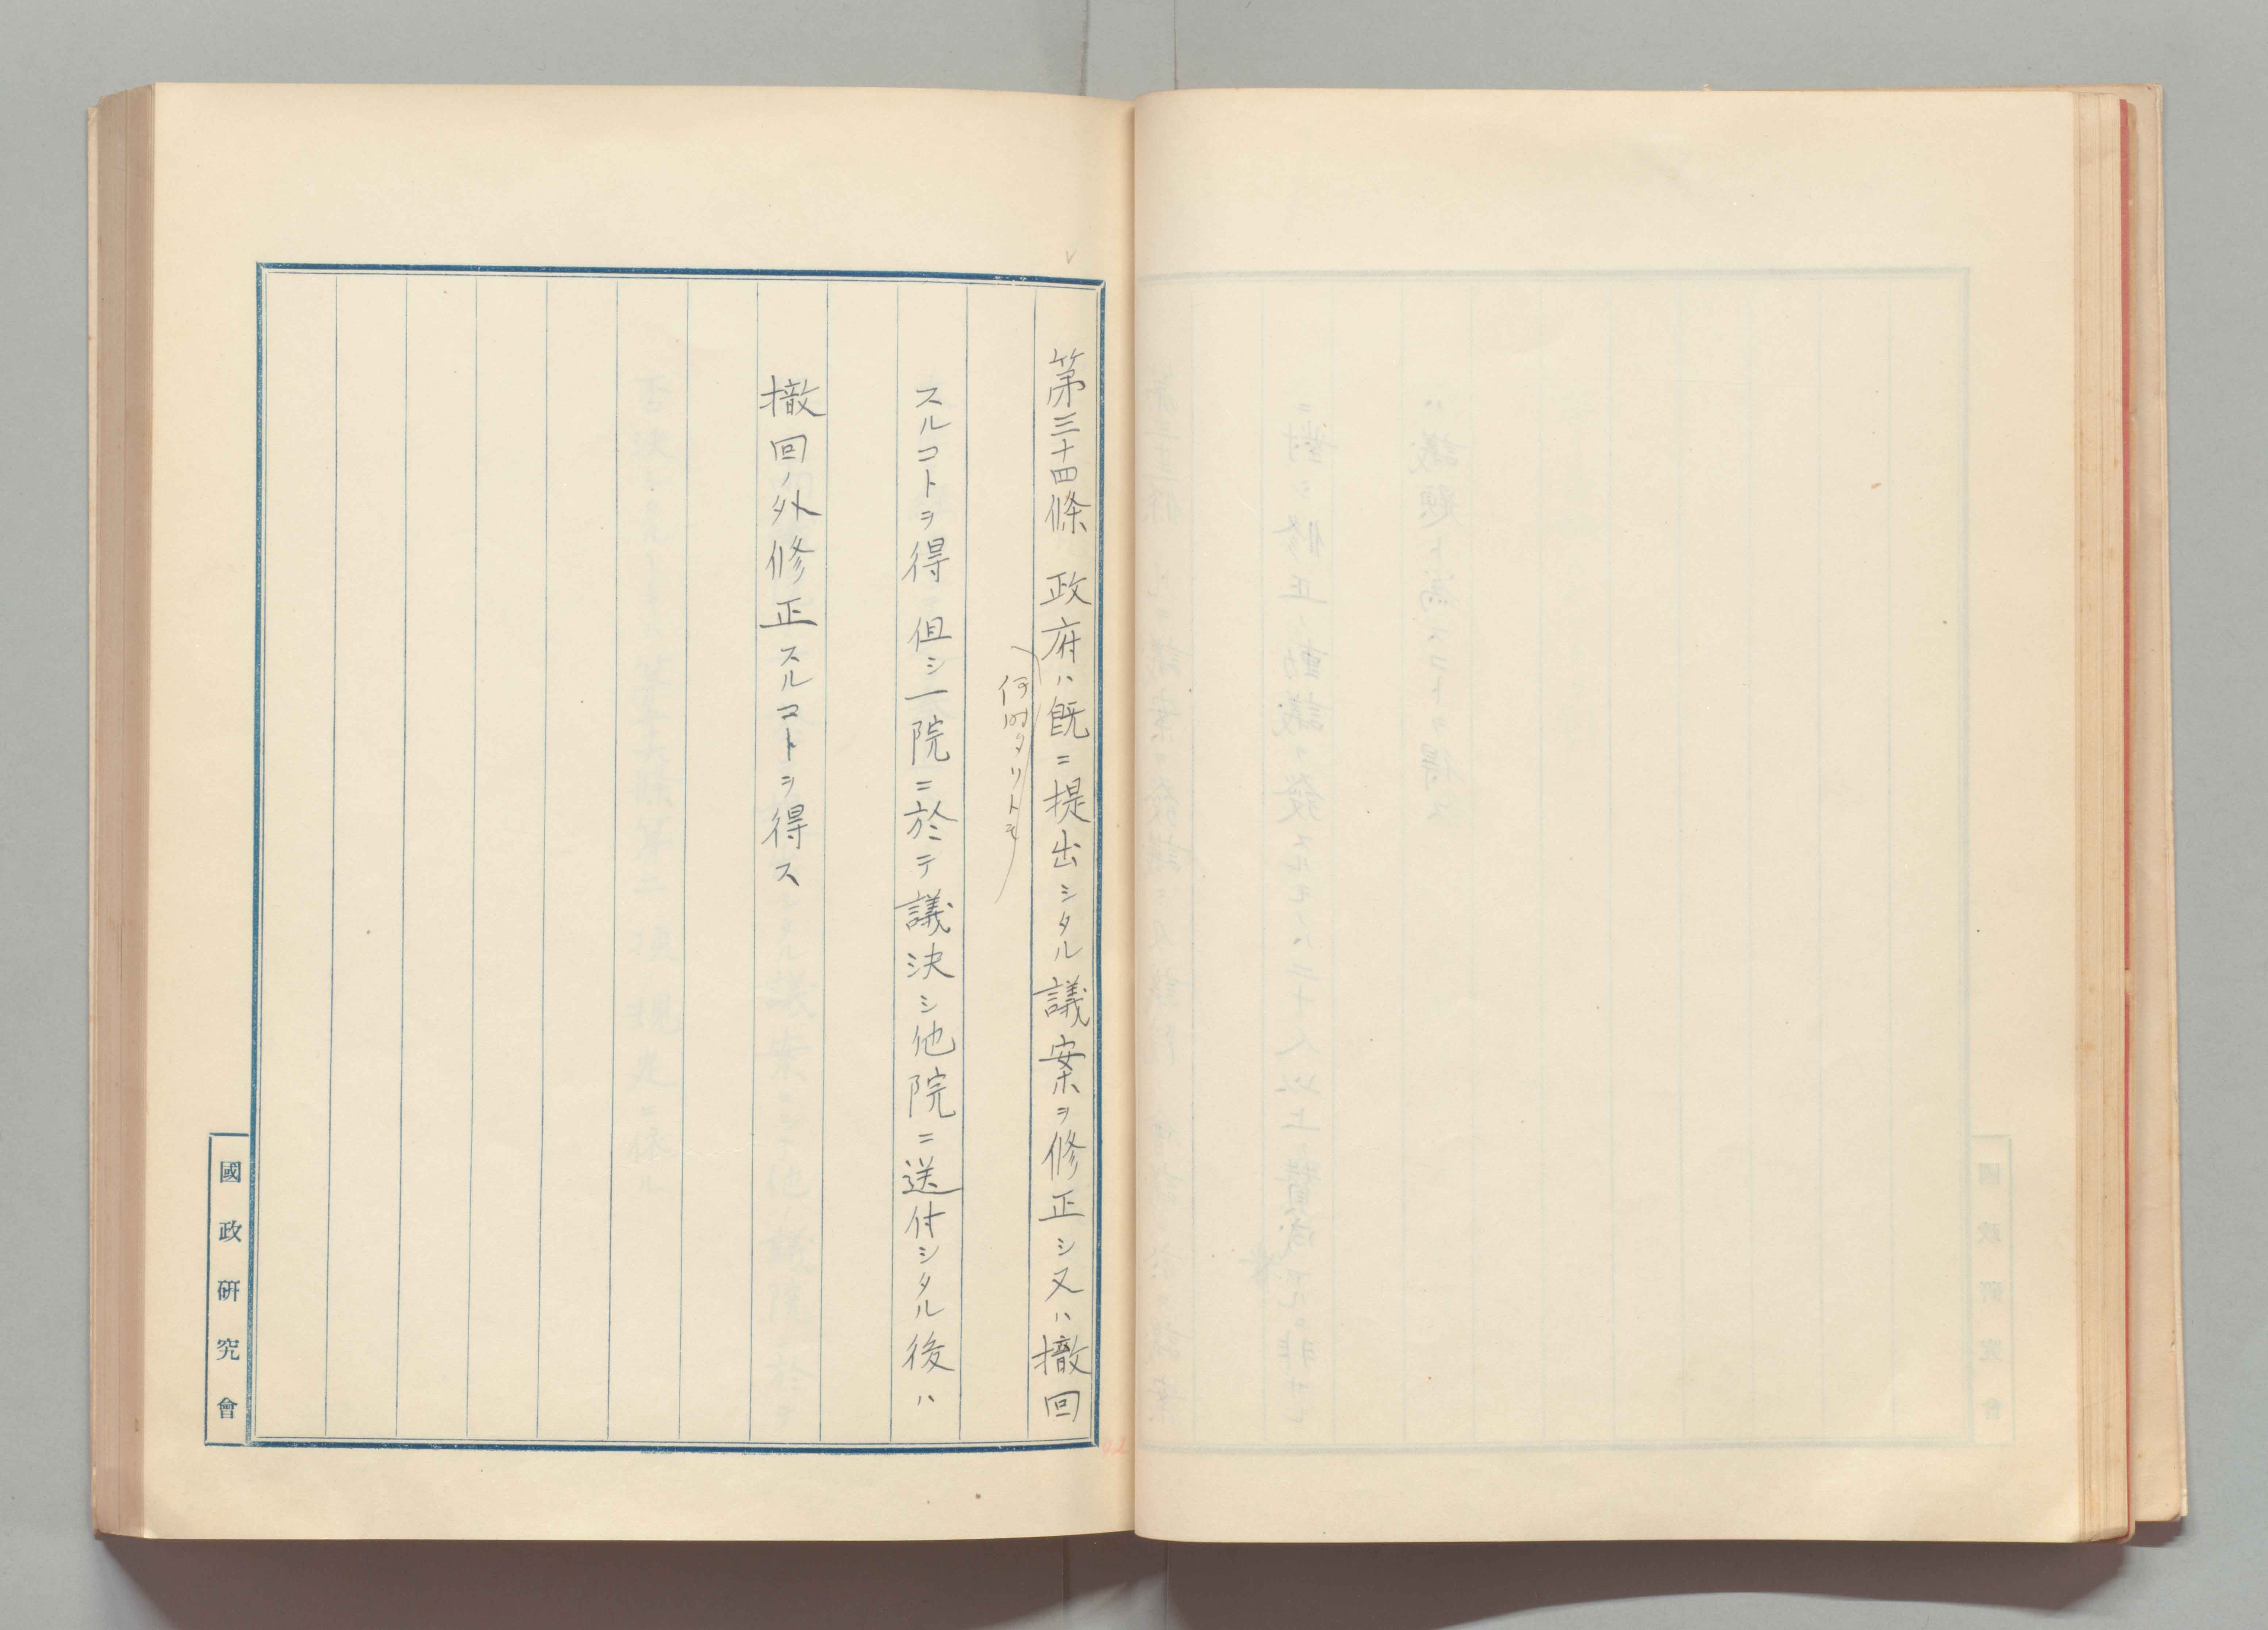 第三十四條　政府ハ既ニ提出シタル議案ヲ修正シ又ハ撤回
何時タリトモ
スルコトヲ得但シ一院ニ於テ議決シ他院ニ送付シタル後ハ
撤回ノ外修正スルコトヲ得ス
國政研究會